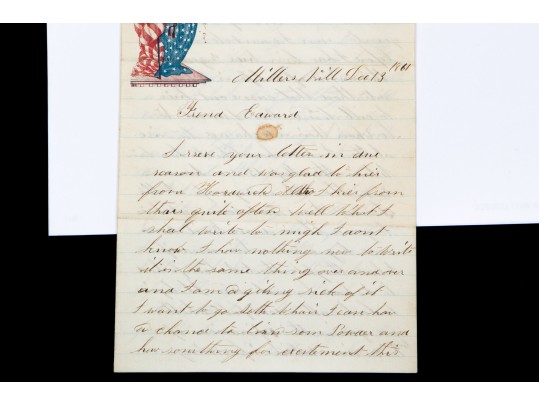 Millers Vill Dec 13 1861
Friend Edward
I reseve your letter in due
seasion and was glad to hier
from Hardwick I hier from
thair quite often well What I
shal write to nigh I dont
know I hav nothing new to write
it is the same thing over and over
and I am a giting sick of it
I want to go soth whair I can hav
a chance to burn som Powder and
hav something for excitement this